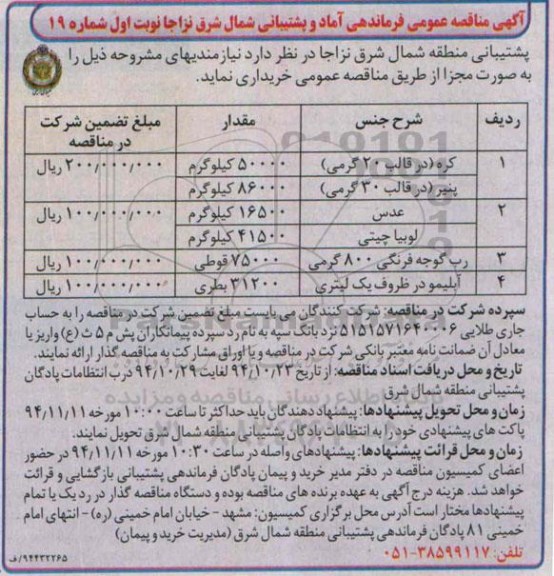 آگهی مناقصه عمومی فرماندهی آماد و پشتیبانی شمال شرق نزاجا نوبت اول شماره ۱۹
پشتیبانی منطقه شمال شرق نزاجا در نظر دارد نیازمندیهای مشروحه ذیل را
به صورت مجزا از طریق مناقصه عمومی خریداری نماید.
ردیف شرح جنس مقدار مبلغ تضمین شرکت در مناقصه
۱ کره (در قالب ۲۰ گرمی) ۵۰۰۰۰ کیلوگرم ۲۰۰/۰۰۰/۰۰۰ ریال
پنیر (در قالب ۳۰ گرمی) ۸۶۰۰۰ کیلوگرم
۲ عدس ۱۶۵۰۰ کیلوگرم ۱۰۰/۰۰۰/۰۰۰ ریال
لوبیا چیتی ۴۱۵۰۰ کیلوگرم
۳ رب گوجه فرنگی ۸۰۰ گرمی ۷۵۰۰۰ قوطی ۱۰۰/۰۰۰/۰۰۰ ریال
۴ آبلیمو در ظروف یک لیتری ۳۱۲۰۰ بطری ۱۰۰/۰۰۰/۰۰۰ ریال
سپرده شرکت در مناقصه: شرکت کنندگان می بایست مبلغ تضمین شرکت در مناقصه را به حساب
جاری طلایی ۵۱۵۱۵۷۱۶۴۰۰۰۶ نزد بانک سپه به نام رد سپرده پیمانکاران پش م ۵ ث (ع) واریز یا
معادل آن ضمانت نامه معتبر بانکی شرکت در مناقصه و یا اوراق مشارکت به مناقصه گذار ارائه نمایند.
تاریخ و محل دریافت اسناد مناقصه: از تاریخ ۹۴/۱۰/۲۳ لغایت ۹۴/۱۰/۲۹ درب انتظامات پادگان
پشتیبانی منطقه شمال شرق
زمان و محل تحویل پیشنهادها: پیشنهاد دهندگان باید حداکثر تا ساعت ۱۰:۰۰ مورخه ۹۴/۱۱/۱۱
پاکت های پیشنهادی خود را به انتظامات پادگان پشتیبانی منطقه شمال شرق تحویل نمایند.
زمان و محل قرائت پیشنهادها: پیشنهادهای واصله در ساعت ۱۰:۳۰ مورخه ۹۴/۱۱/۱۱ در حضور
اعضای کمیسیون مناقصه در دفتر مدیر خرید و پیمان پادگان فرماندهی پشتیبانی بازگشایی و قرائت
خواهد شد. هزینه درج آگهی به عهده برنده های مناقصه بوده و دستگاه مناقصه گذار در رد یک یا تمام
پیشنهادها مختار است آدرس محل برگزاری کمیسیون: مشهد - خیابان امام خمینی (ره) - انتهای امام
خمینی ۸۱ پادگان فرماندهی پشتیبانی منطقه شمال شرق (مدیریت خرید و پیمان)
تلفن: ۳۸۵۹۹۱۱۷-۰۵۱
۹۴۴۳۲۲۶۵/ف